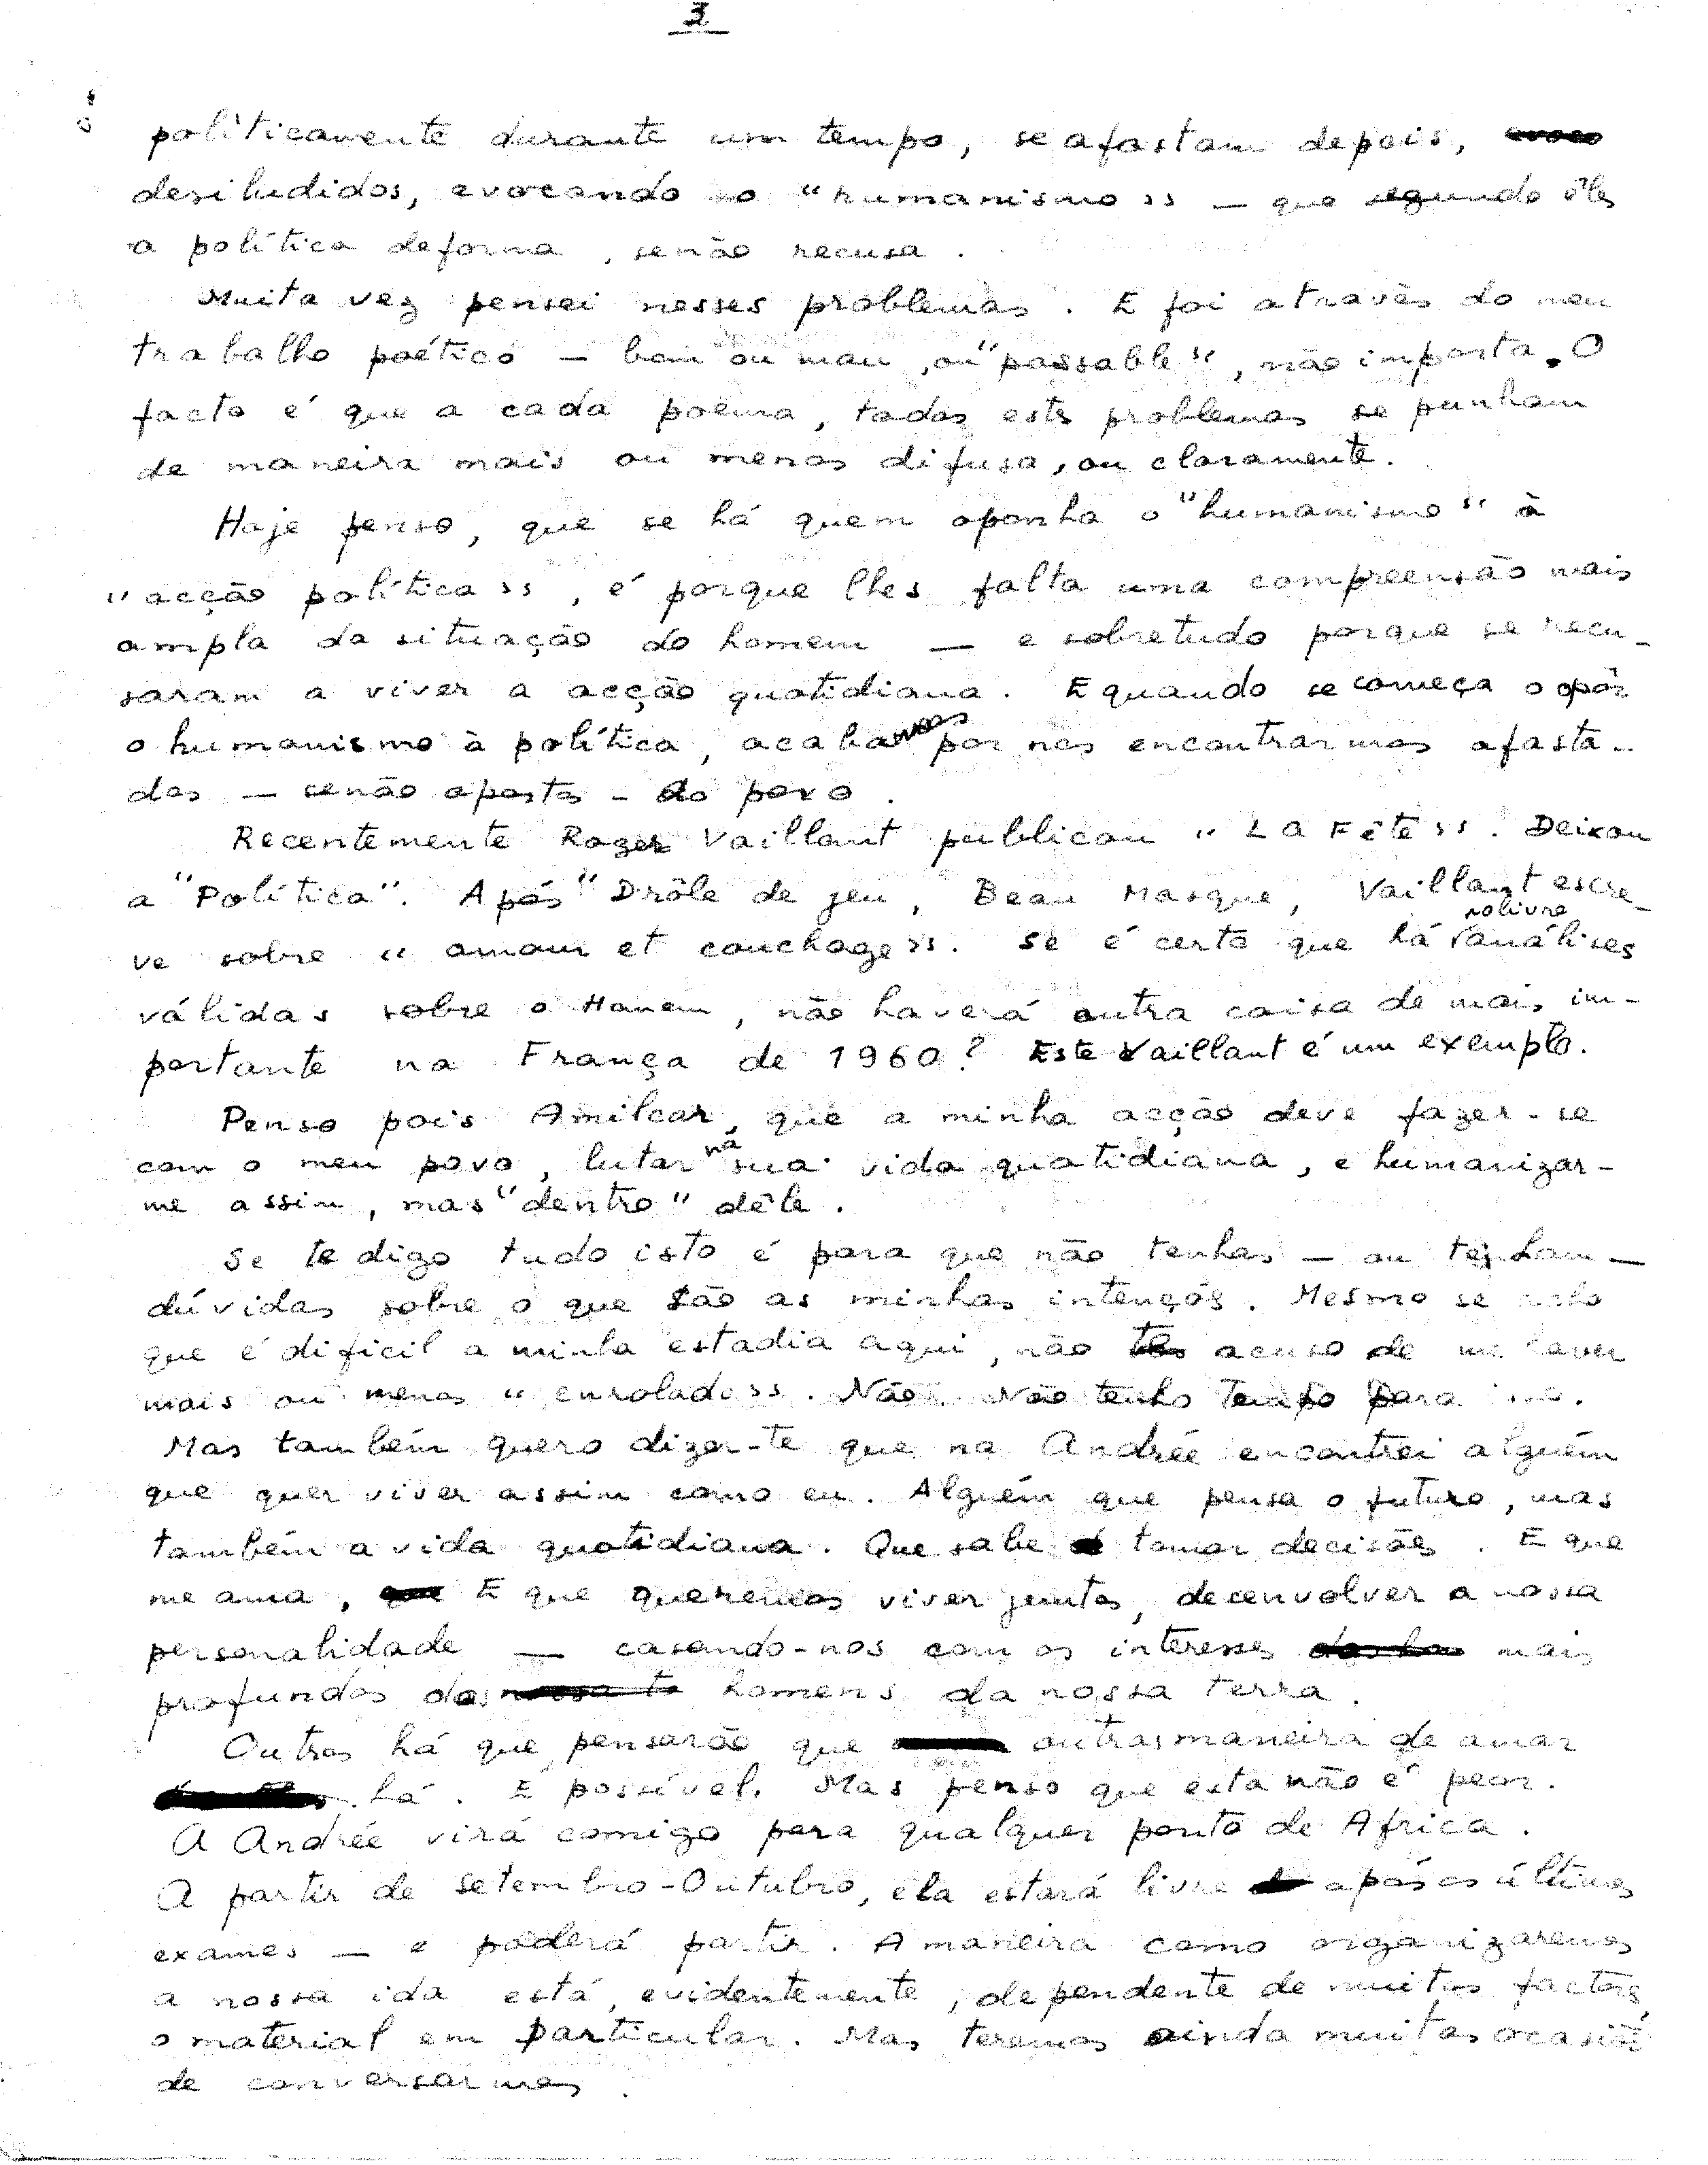 3
politicamente durante um tempo, se afastam depois,
desiludidos, evocando o "humanismo" — que segundo êles
a política deforma, senão recusa.
Muita vez pensei nesses problemas. E foi através do meu
trabalho poético — bom ou mau, ou "passable", não importa. O
facto é que a cada poema, todos estes problemas se punham
de maneira mais ou menos difusa, ou claramente.
Hoje penso, que se há quem oponha o "humanismo" à
"acção política", é porque lhes falta uma compreensão mais
ampla da situação do homem — e sobretudo porque se recu-
saram a viver a acção quotidiana. E quando se começa o opôr
o humanismo à política, acabamos por nos encontrarmos afasta-
dos — senão opostos — do povo.
Recentemente Roger Vaillant publicou "La Fête". Deixou
a "Política". Após "Drôle de jeu, Beau Masque, Vaillant escre-
ve sobre "amour et couchage". Se é certo que há no livre análises
válidas sobre o Homem, não haverá outra coisa de mais im-
portante na França de 1960? Este Vaillant é um exemplo.
Penso pois Amilcar, que a minha acção deve fazer-se
com o meu povo, lutar na sua vida quotidiana, e humanizar-
me assim, mas "dentro" dêle.
Se te digo tudo isto é para que não tenhas — ou tenham —
dúvidas sobre o que são as minhas intenções. Mesmo se acho
que é dificil a minha estadia aqui, não te acuso de me haver
mais ou menos "enrolado". Não. Não tenho tempo para isso.
Mas também quero dizer-te que na Andrée encontrei alguém
que quer viver assim como eu. Alguém que pensa o futuro, mas
também a vida quotidiana. Que sabe tomar decisões. E que
me ama, E que queremos viver juntos, desenvolver a nossa
personalidade — casando-nos com os interesses mais
profundos dos homens da nossa terra.
Outros há que pensarão que outras maneira de amar
há. E possível. Mas penso que esta não é peor.
A Andrée virá comigo para qualquer ponto de Africa.
A partir de Setembro-Outubro, ela estará livre após os últimos
exames — e poderá partir. A maneira como organizaremos
a nossa ida está, evidentemente, dependente de muitos factores,
o material em particular. Mas teremos ainda muitas ocasiões
de conversarmos.